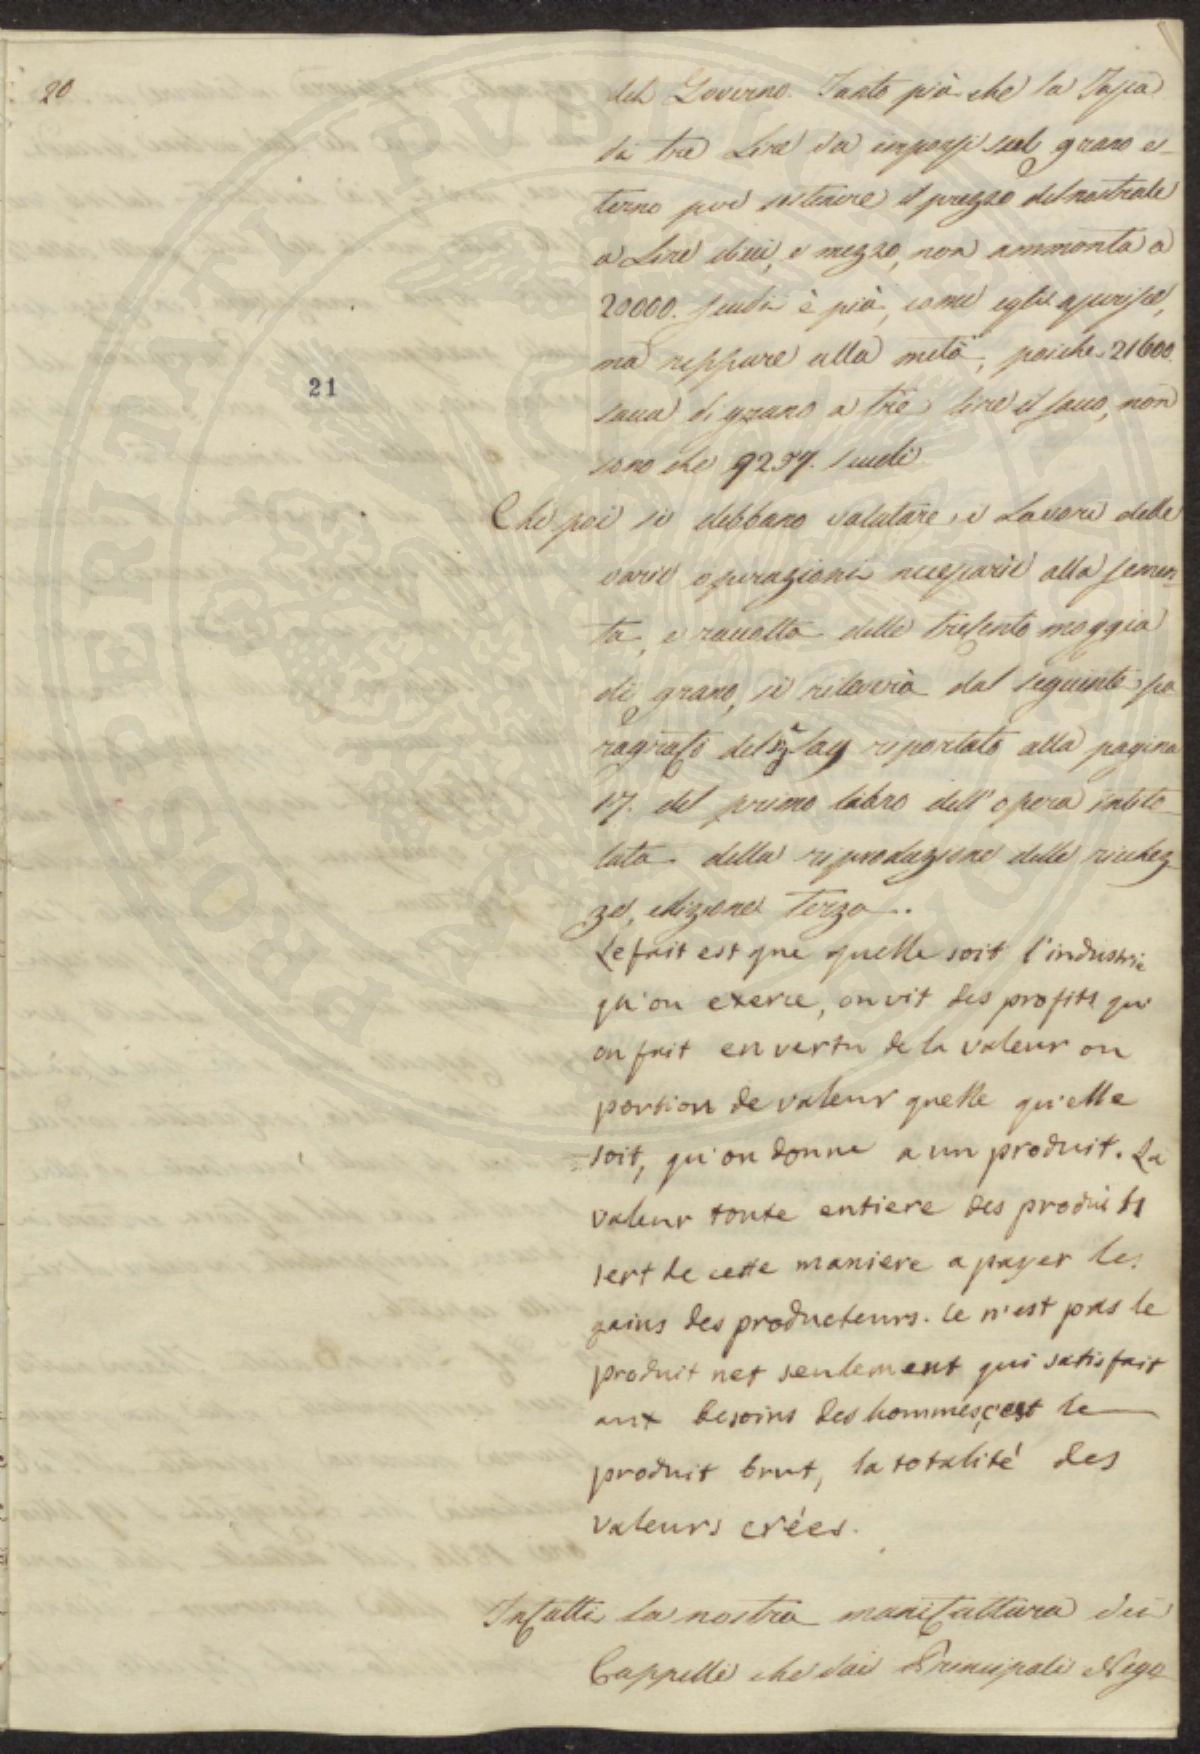 20
21
del Governo. Tanto più che la Tassa
di tre Lire da imporsi sul grano es-
terno per sostenere il prezzo del nostrale
a Lire dieci, e mezzo, non ammonta a
20000. scudi e più, come egli asserisce,
ma neppure alla metà, poiche 21600
sacca di grano a tre lire il sacco, non
sono che 9257. scudi
Che poi si debbano valutare i Lavori delle
varie operazioni necessarie alla semen-
ta, e raccolta delle trecento moggia
di grano, si rileverà dal seguente pa
ragrafo del Sig.r Say riportato alla pagina
17. del primo libro dell'opera intito-
lata della riproduzione delle ricchez-
ze, edizione Terza.
Le fait est que quelle soit l'industrie
qu'on exerce, on vit des profits qu'
on fait en vertu de la valeur ou
portion de valeur quelle qu'elle
soit, qu'on donne a un produit. La
valeur toute entiere des produits
sert de cette maniere a payer les
gains des producteurs. Ce n'est pas le
produit net seulement qui satisfait
aux besoins des hommes, c'est le
produit brut, la totalité des
valeurs crées.
Infatti la nostra manifattura dei
Cappelli che dai Principali Nego
PROSPERITATI PVBLICAE